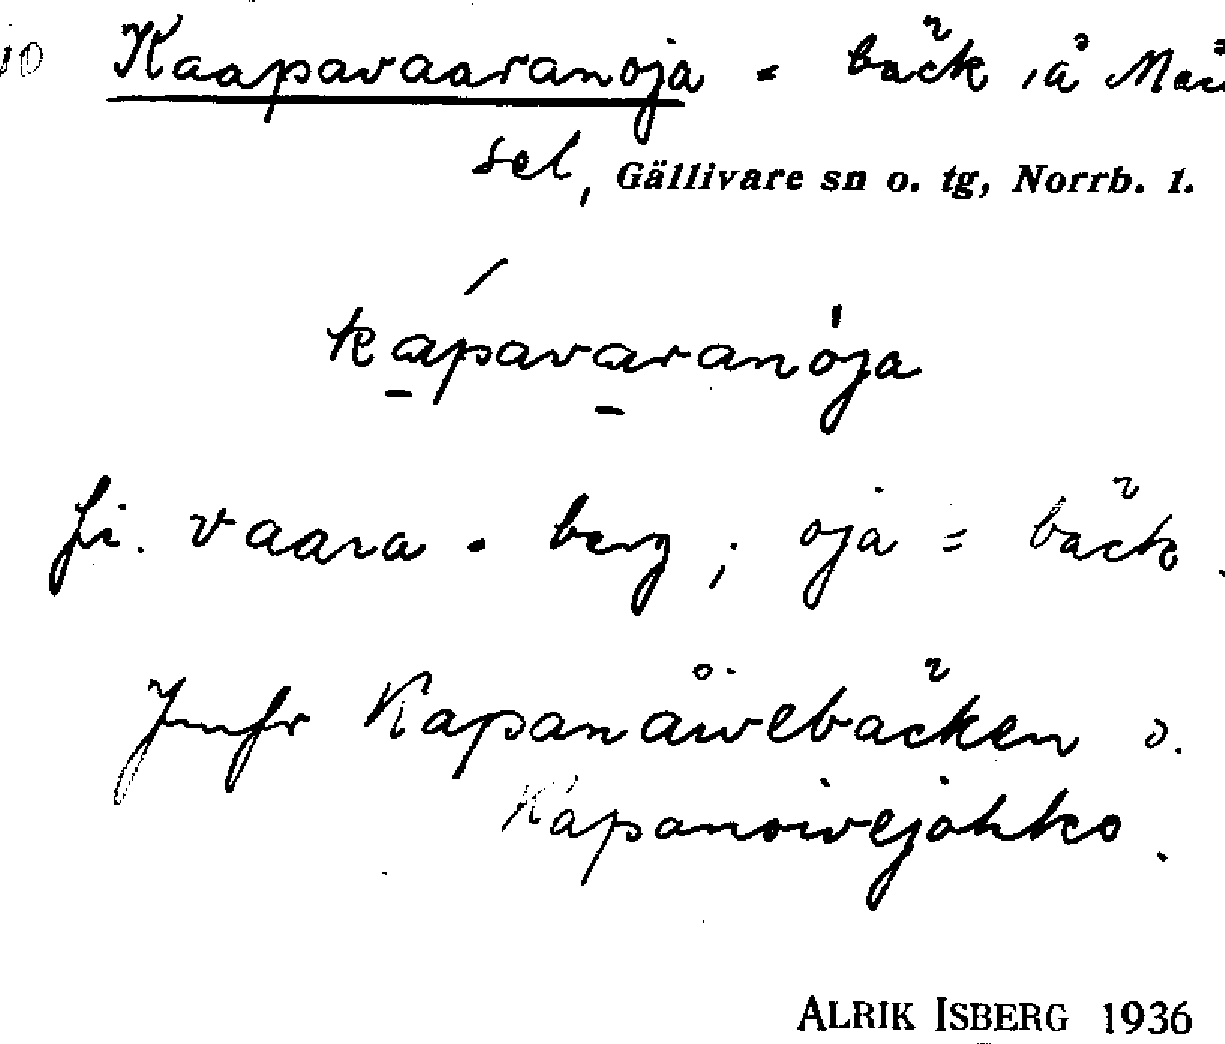 Kaapavaaranoja = bäck, å
sel, Gällivare sn o. tg, Norrb. l.
kápavaranója
fi. vaara = berg; oja = bäck.
Jmfr Kapanåivebäcken o.
Kapanoivejohko.
ALRIK ISBERG 1936